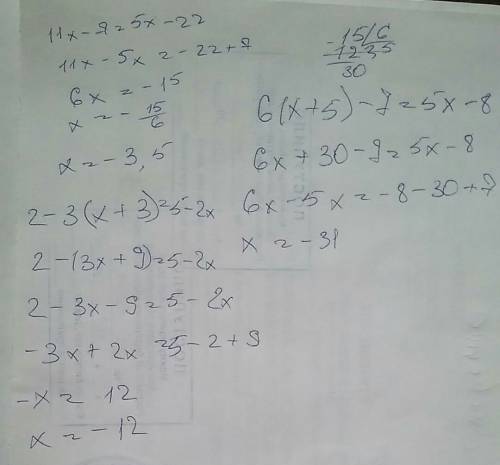 11x - 7 = 5x - 22
11x - 5x = -22 + 7
6x = -15
x = - 15/6
x = -3,5
2 - 3(x + 3) = 5 - 2x
2 - (3x + 9) = 5 - 2x
2 - 3x - 9 = 5 - 2x
-3x + 2x = 5 - 2 + 9
-x = 12
x = -12
-15/6
12 3,5
30
6(x + 5) - 7 = 5x - 8
6x + 30 - 7 = 5x - 8
6x - 5x = -8 - 30 + 7
x = -31